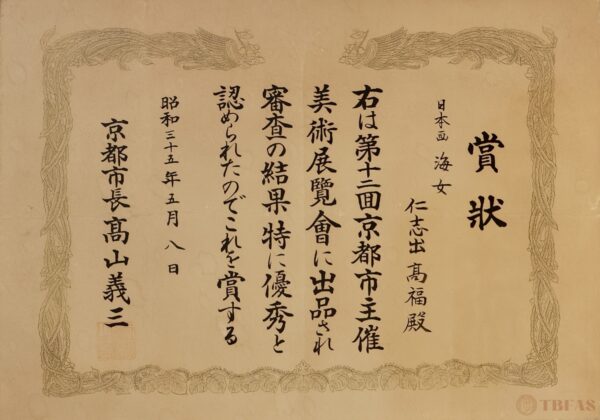 賞狀
日本画 海女
仁志出 髙福殿
右は第十二回京都市主催
美術展覽會に出品され
審査の結果特に優秀と
認められたのでこれを賞する
昭和三十五年五月八日
京都市長髙山義三
TBFAS